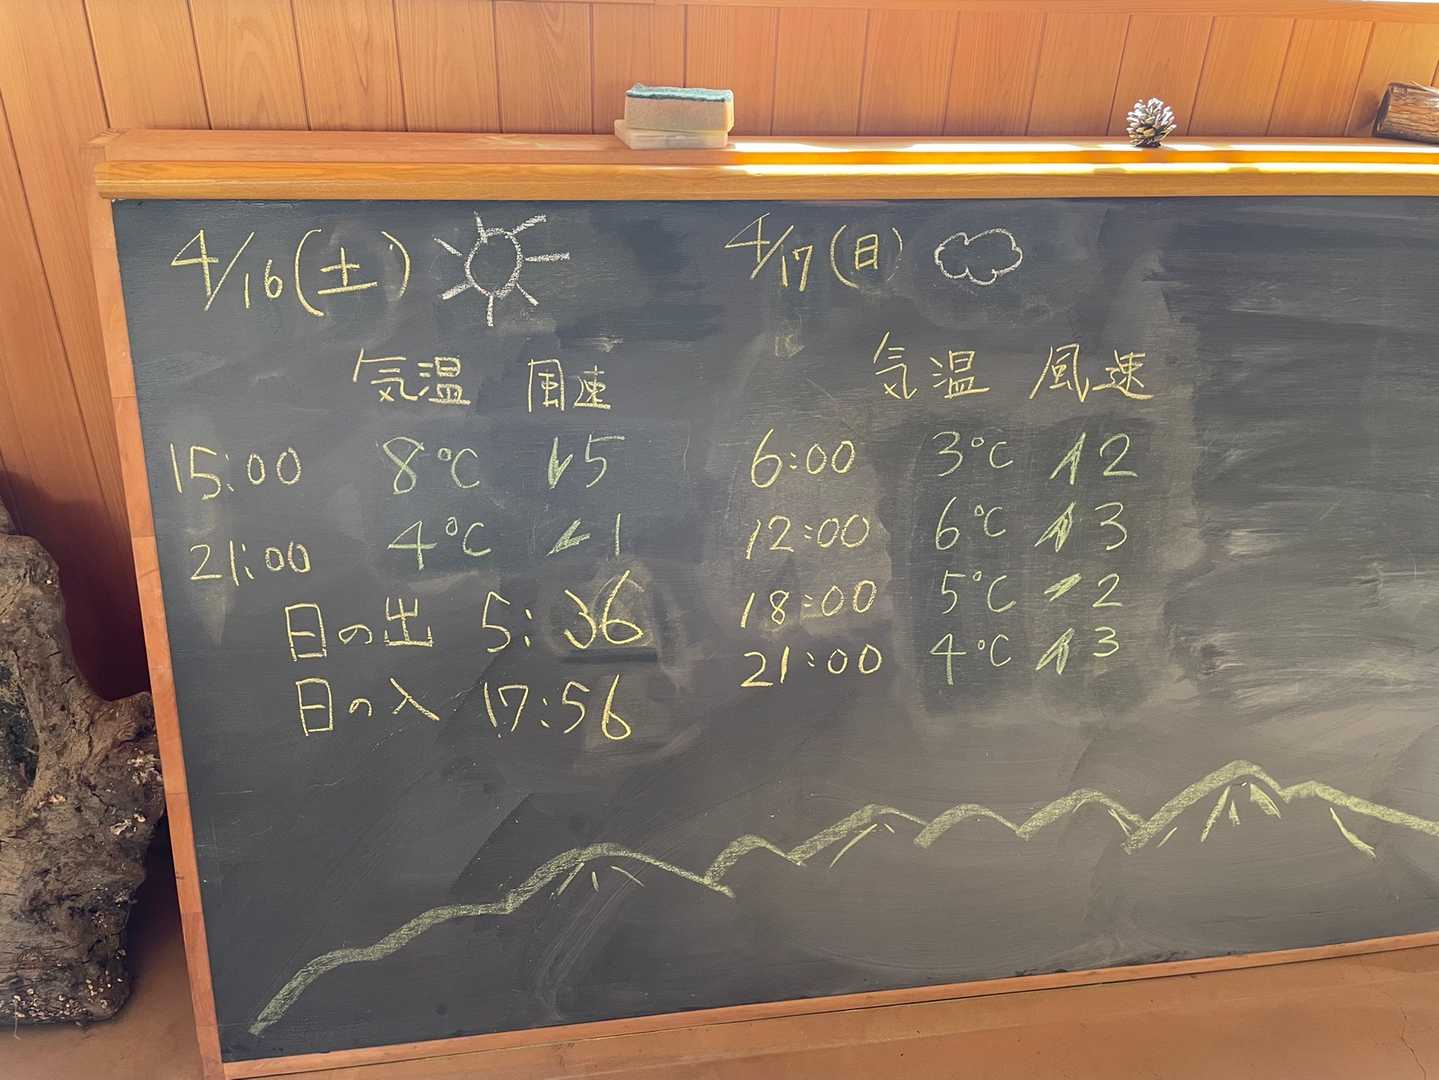 4/16(土)
気温 風速
15:00 8℃ 5
21:00 4℃ 1
日の出 5:36
日の入 17:56
4/17(日)
気温 風速
6:00 3℃ 2
12:00 6℃ 3
18:00 5℃ 2
21:00 4℃ 3